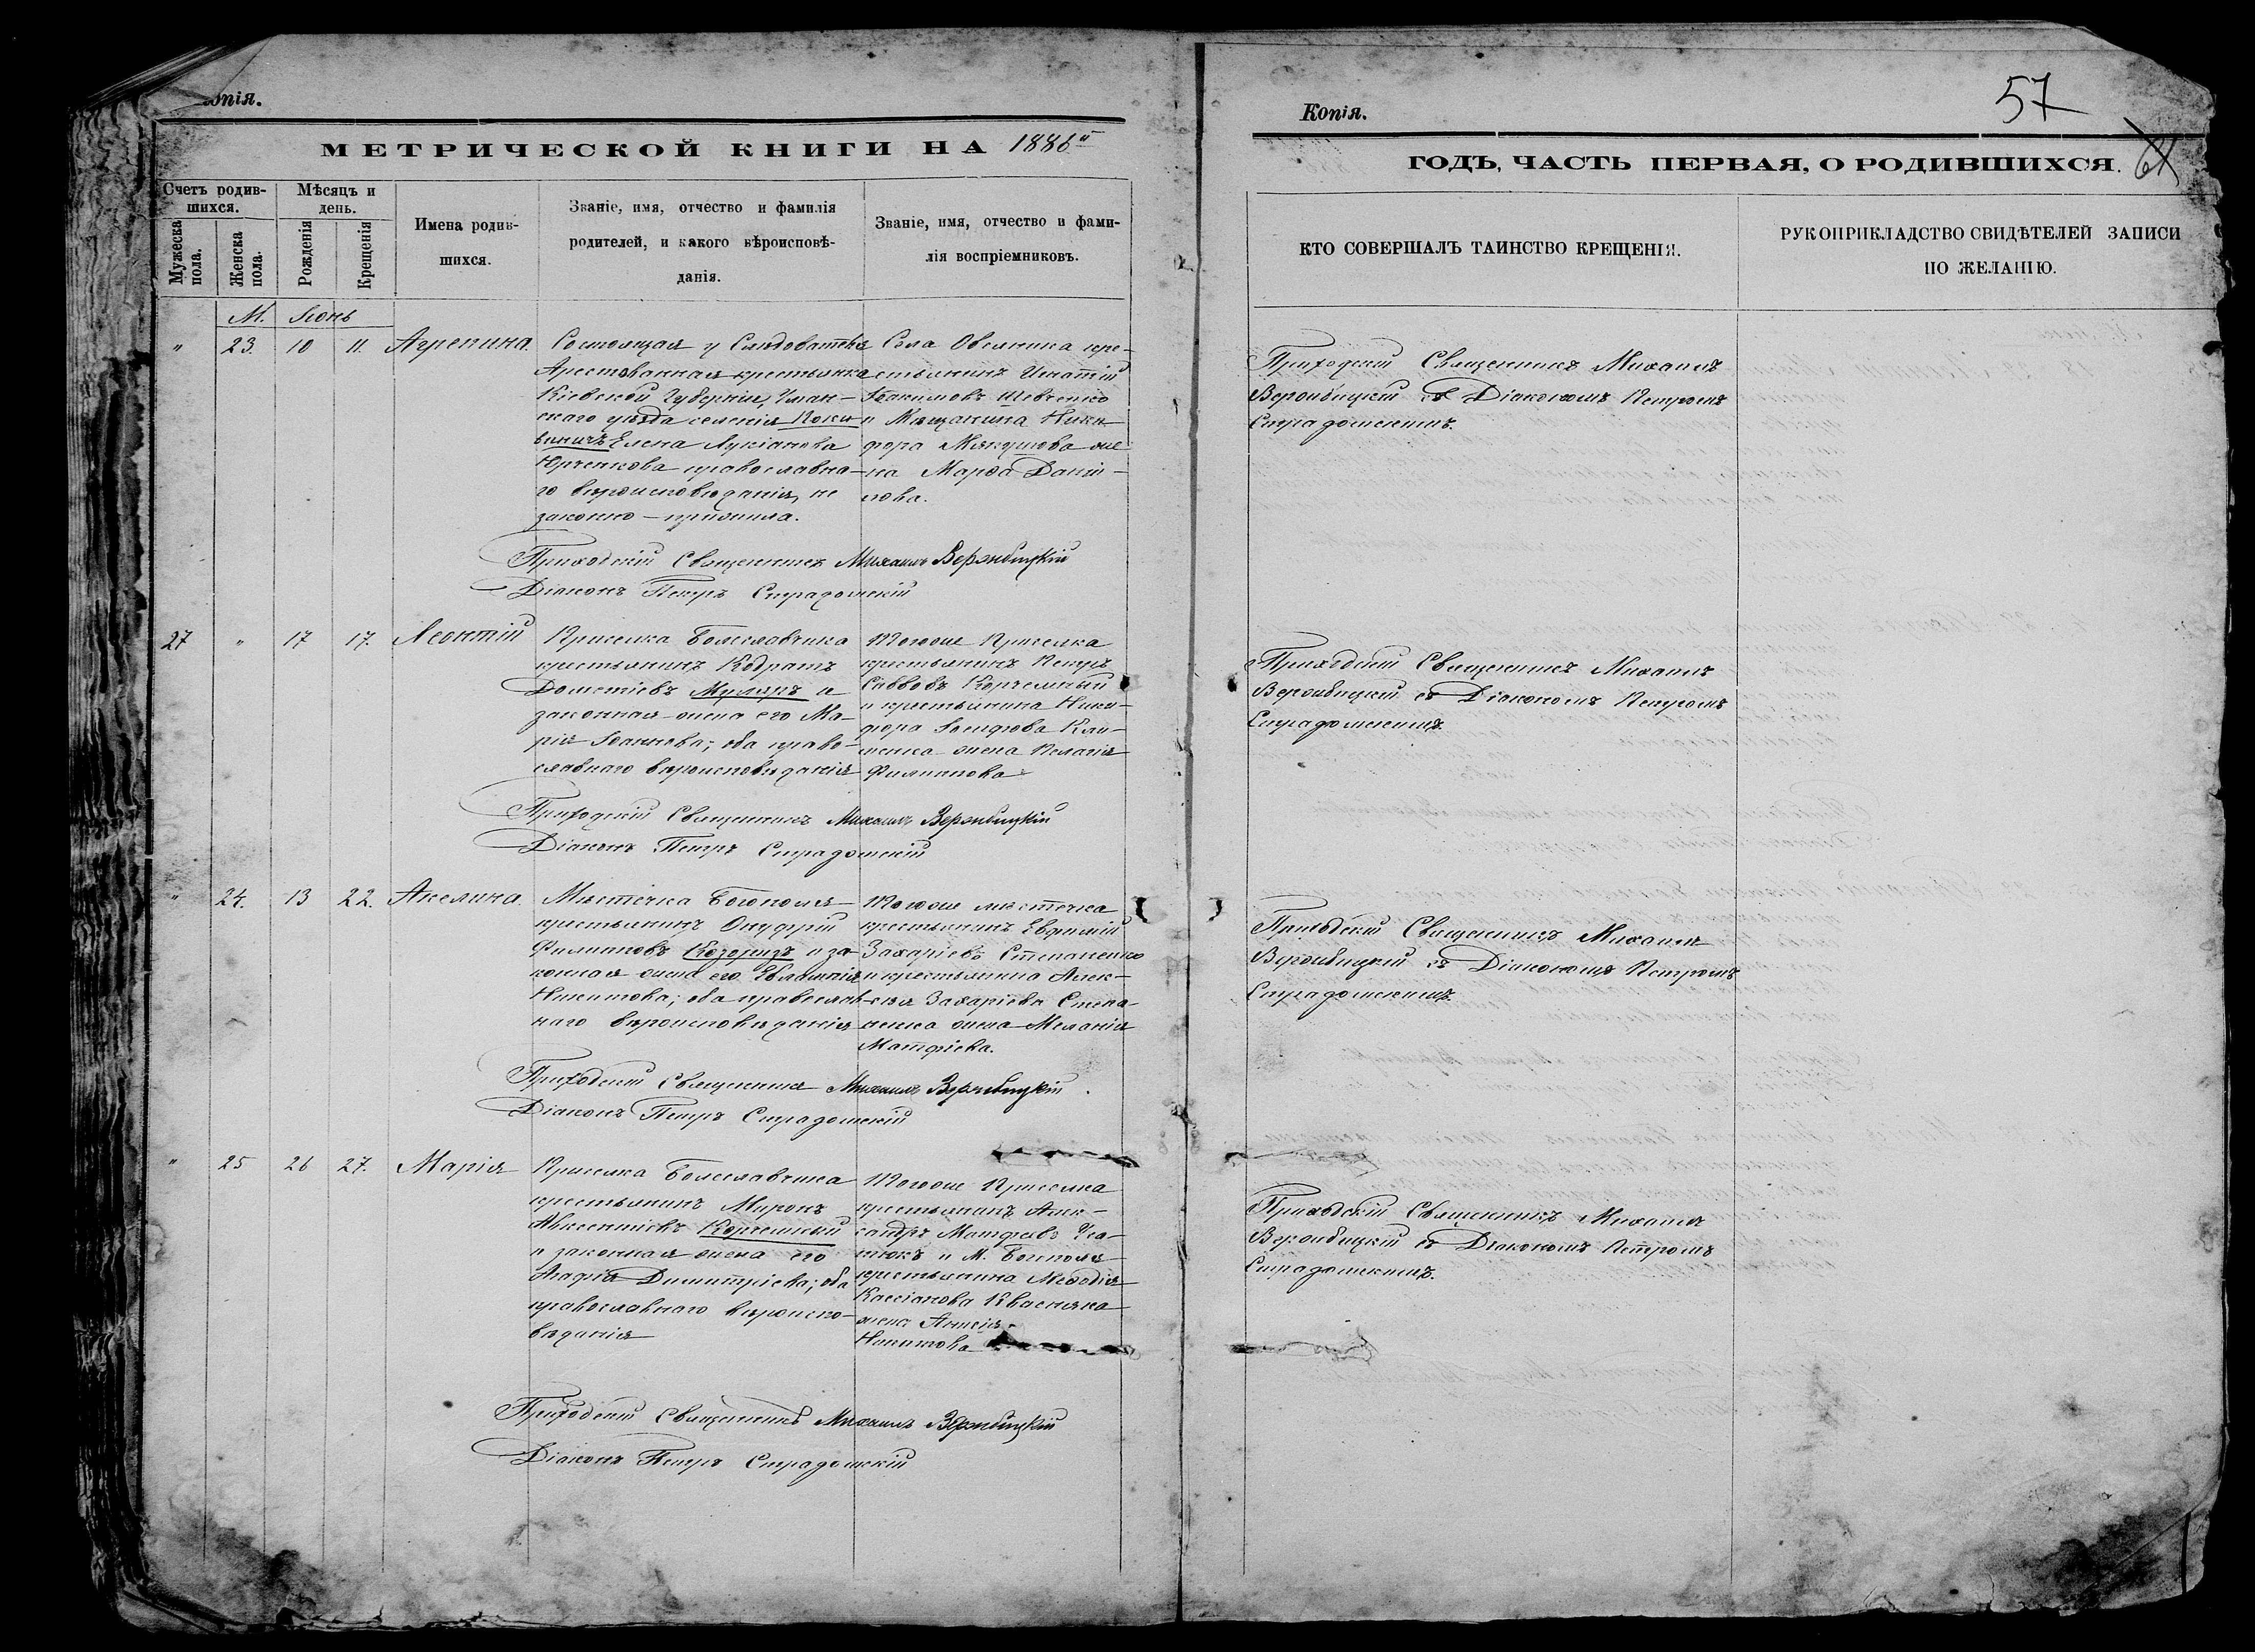 Копія.
МЕТРИЧЕСКОЙ КНИГИ НА 1886й
Счетъ родив-
шихся.
Мужеска пола.
Женска пола.
Мѣсяцъ и
день.
Рожденія
Крещенія
Имена родив-
шихся.
Званіе, имя, отчество и фамилія
родителей, и какого вѣроисповѣ-
данія.
Званіе, имя, отчество и фами-
лія воспріемниковъ.
М. Іюнь
" 23. 10 11. Агрепина.
Состоящая у Слѣдователя
Арестованная крестьянка
Кіевской Губерніи, Уман-
скаго уѣзда селенія
Елена Лукіанова
Юрченкова православна-
го вѣроисповѣданія, не
законно-прижила.
Села Овсяника кре-
стьянинъ Игнатій
Іоакимовъ Шевченко
и Мѣщанина Ники-
фора жe-
на Марфа Даніи-
лова.
Приходскій Священникъ Михаилъ Вержбицкій
Діаконъ Петръ Страдомскій
27 " 17 17. Леонтій
Приселка Болеславчика
крестьянинъ Кодратъ
Дометіевъ Муляръ и
законная жена его Ма-
рія Іоаннова; оба право-
славнаго вѣроисповѣданія
Тогоже Приселка
крестьянинъ Петръ
Саввовъ Корчемный
и крестьянина Ники-
фора Кли-
менка жена Пелагія
Филиппова
Приходскій Священникъ Михаилъ Вержбицкій
Діаконъ Петръ Страдомскій
" 24. 13 22. Акелина.
Мѣстечка Богополя
крестьянинъ Онуфрій
Филипповъ Козоризъ и за-
конная жена его Евлампія
Никитова; оба православ-
наго вѣроисповѣданія
Тогоже мѣстечка
крестьянинъ Евфимій
Захаріевъ Степаненко
и крестьянина Алек-
сѣя Захаріева Степа-
ненка жена Меланія
Матфіева.
Приходскій Священникъ Михаилъ Вержбицкій
Діаконъ Петръ Страдомскій
" 25 26 27. Марія
Приселка Болеславчика
крестьянинъ Миронъ
Авксентіевъ Корчемный
и законная жена его
Агафія Димитріева; оба
православнаго вѣроиспо-
вѣданія
Тогоже Приселка
крестьянинъ Алек-
сандръ Матфіевъ
и М. Богополя
крестьянина Меѳодія
Кассіанова Квасняка
жена Анисія
Никитова
Приходскій Священникъ Михаилъ Вержбицкій
Діаконъ Петръ Страдомскій
57
Копія.
ГОДЪ, ЧАСТЬ ПЕРВАЯ, О РОДИВШИХСЯ.
КТО СОВЕРШАЛЪ ТАИНСТВО КРЕЩЕНІЯ.
РУКОПРИКЛАДСТВО СВИДѢТЕЛЕЙ ЗАПИСИ
ПО ЖЕЛАНІЮ.
Приходскій Священникъ Михаилъ
Вержбицкій съ Діакономъ Петромъ
Страдомскимъ.
Приходскій Священникъ Михаилъ
Вержбицкій съ Діакономъ Петромъ
Страдомскимъ.
Приходскій Священникъ Михаилъ
Вержбицкій съ Діакономъ Петромъ
Страдомскимъ.
Приходскій Священникъ Михаилъ
Вержбицкій съ Діакономъ Петромъ
Страдомскимъ.